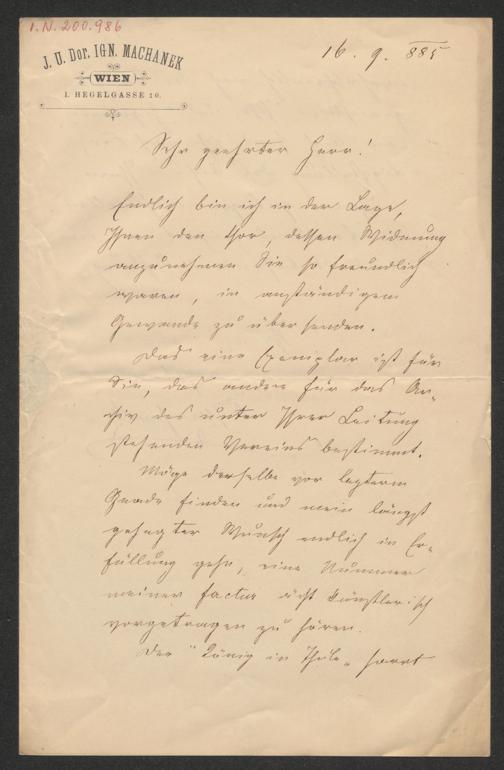 I.N. 200.986
J. U. Dor. IGN. MACHANEK
WIEN
I. HEGELGASSE 20.
16. 9. 885
Sehr geehrter Herr!
Endlich bin ich in der Lage,
Ihnen den Chor, dessen Widmung
anzunehmen Sie so freundlich
waren, in anständigem
Gewande zu übersenden.
Das eine Exemplar ist für
Sie, das andere für das Ar-
chiv des unter Ihrer Leitung
stehenden Vereins bestimmt.
Möge derselbe vor letzterm
Gnade finden und mein längst
gehegter Wunsch endlich in Er-
füllung gehn, eine Nummer
meiner factur ächt künstlerisch
vorgetragen zu hören.
Der "König in Thule" harrt